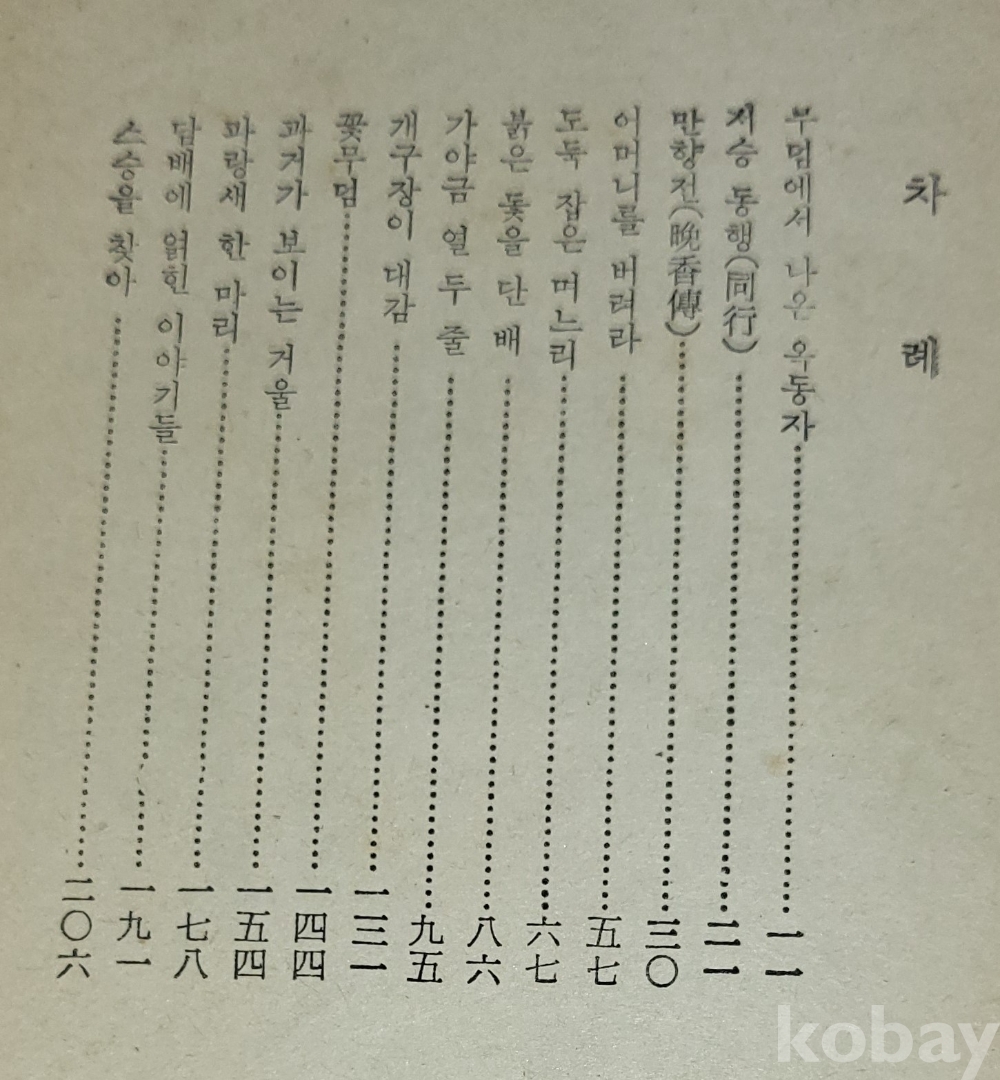 차 례
무덤에서 나온 옥동자 一一
저승 동행(同行) 二一
만향전(晩香傳) 三〇
어머니를 버려라 五七
도둑 잡은 며느리 六七
붉은 돛을 단 배 八六
가야금 열 두 줄 九五
개구장이 대감 一三一
꽃무덤 一四四
과거가 보이는 거울 一五四
파랑새 한 마리 一七八
담배에 얽힌 이야기들 一九一
스승을 찾아 二〇六
kobay